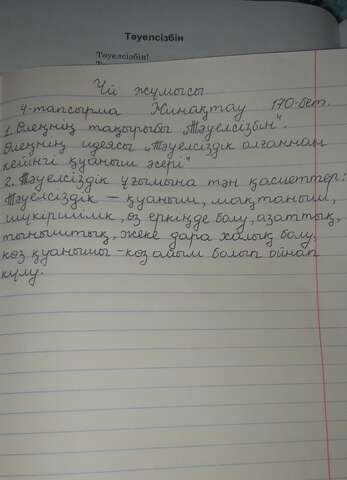 Тәуелсізбін
Тәуелсізбін!
Үй жұмысы
4-тапсырма Жинақтау 170-бет.
1. Өлеңнің тақырыбы „Тәуелсізбін".
Өлеңнің идеясы „Тәуелсіздік алғаннан
кейінгі қуаныш әсері"
2. Тәуелсіздік ұғымына тән қасиеттер:
Тәуелсіздік – қуаныш, мақтаныш,
шүкіршілік, өз еркіңде болу, азаттық,
тыныштық, жеке дара халық болу,
көз қуанышы – көз айым болып ойнап
күлу.